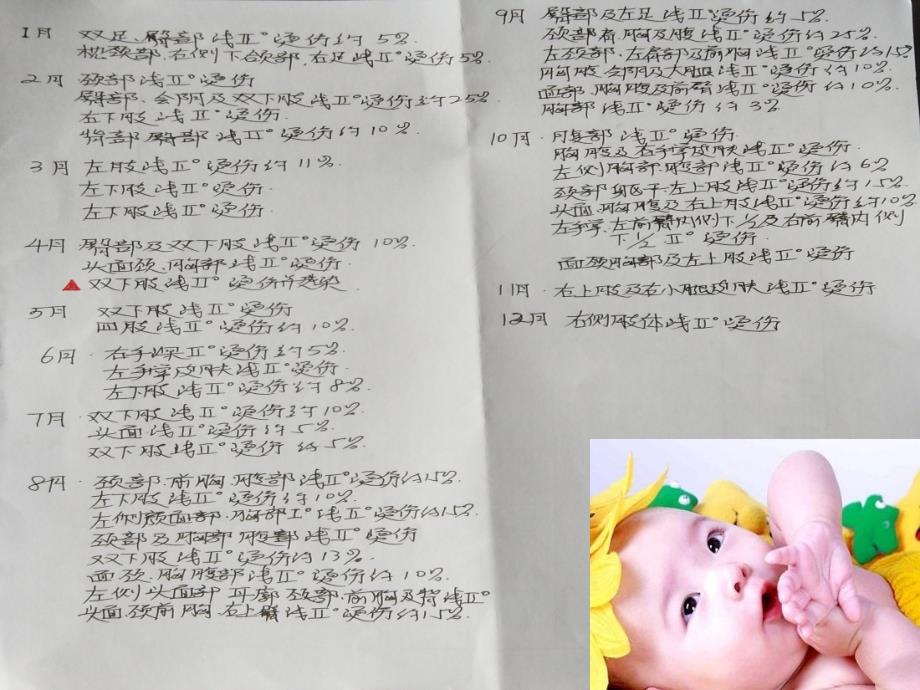 1月 双足、臀部浅Ⅱ°烫伤约5%
枕颈部、右侧下颌部、右足烫伤5%
2月 颈部浅Ⅱ°烫伤
臀部、会阴及双下肢浅Ⅱ°烫伤约25%
左下肢浅Ⅱ°烫伤
背部臀部浅Ⅱ°烫伤约10%
3月 左股浅Ⅱ°烫伤约11%
左下肢浅Ⅱ°烫伤
左下肢浅Ⅱ°烫伤
4月 臀部及双下肢浅Ⅱ°烫伤10%
头面颈、胸部浅Ⅱ°烫伤
双下肢浅Ⅱ°烫伤并感染
5月 双下肢浅Ⅱ°烫伤
四肢浅Ⅱ°烫伤约10%
6月 右手踝Ⅱ°烫伤约5%
左手掌皮肤浅Ⅱ°烫伤
左下肢浅Ⅱ°烫伤约8%
7月 双下肢浅Ⅱ°烫伤约10%
头面浅Ⅱ°烫伤约5%
双下肢浅Ⅱ°烫伤约5%
8月 颈部、前胸、腹部浅Ⅱ°烫伤约15%
左下肢浅Ⅱ°烫伤约10%
左侧颜面部、胸部Ⅰ°浅Ⅱ°烫伤约15%
颈部及胸部腹部浅Ⅱ°烫伤
双下肢浅Ⅱ°烫伤约13%
面颈、胸腹部浅Ⅱ°烫伤约10%
左侧头面部耳廓颈部、前胸及背浅Ⅱ°
头面颈前胸、右上臂浅Ⅱ°烫伤约15%
9月 臀部及左足浅Ⅱ°烫伤约5%
颈部前胸及腹浅Ⅱ°烫伤约25%
左颈部、左肩部及前胸浅Ⅱ°烫伤约15%
胸腹、会阴及大腿浅Ⅱ°烫伤约10%
面部、胸腹及前臂浅Ⅱ°烫伤约10%
胸部浅Ⅱ°烫伤约3%
10月 腹部浅Ⅱ°烫伤
胸腹及右手掌皮肤浅Ⅱ°烫伤
左侧胸部、腹部浅Ⅱ°烫伤约6%
颈部躯干左上肢浅Ⅱ°烫伤约15%
头面、胸腹及右上肢浅Ⅱ°烫伤约10%
左手掌、左前臂内侧下1/2及右前臂内侧
下1/2Ⅱ°烫伤
面颈胸部及左上肢浅Ⅱ°烫伤
11月 右上肢及右小腿皮肤浅Ⅱ°烫伤
12月 右侧肢体浅Ⅱ°烫伤